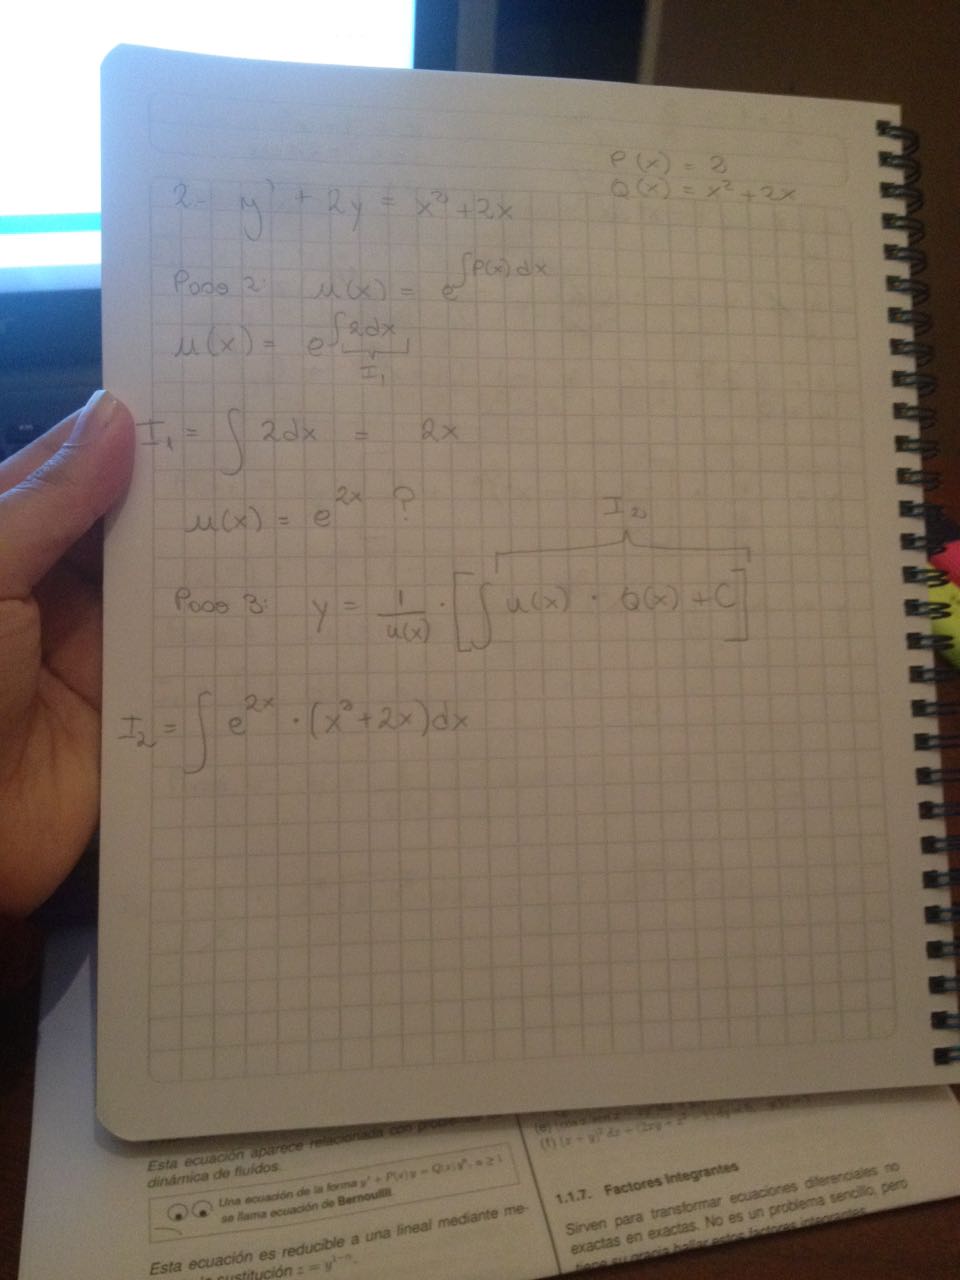 P(x) = 2
Q(x) = x² + 2x
2.- y' + 2y = x² + 2x
Paso 2: μ(x) = e^∫P(x)dx
μ(x) = e^∫2dx
I₁
I₁ = ∫ 2dx = 2x
μ(x) = e^2x ?
I₂
Paso 3: y = 1/u(x) · [∫ u(x) · Q(x) + C]
I₂ = ∫ e^2x · (x² + 2x)dx
Esta ecuación aparece relacionada con
dinámica de fluidos.
Una ecuación de la forma y' + P(x)y = Q(x)yⁿ, n ≥ 1
se llama ecuación de Bernoulli.
Esta ecuación es reducible a una lineal mediante me-
sustitución z = y^1−n.
1.1.7. Factores Integrantes
Sirven para transformar ecuaciones diferenciales no
exactas en exactas. No es un problema sencillo, pero
tiene su gracia hallar estos factores integrantes